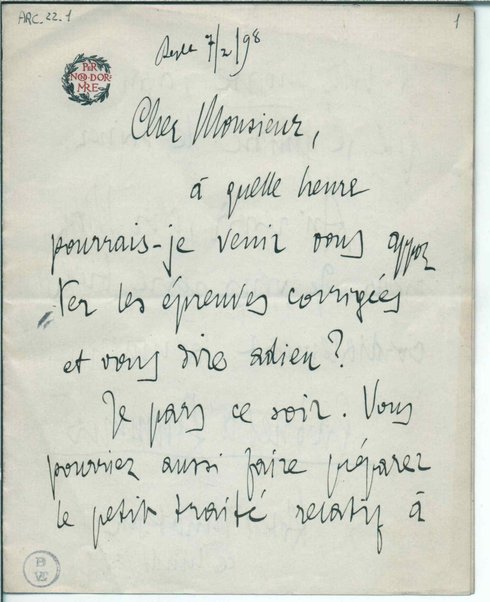 ARC. 22.1
1
7/2/98
PER
NON DOR-
MIRE
Cher Monsieur,
à quelle heure
pourrais-je venir vous appor
ter les épreuves corrigées
et vous dire adieu?
Je pars ce soir. Vous
pourriez aussi faire préparer
le petit traité relatif à